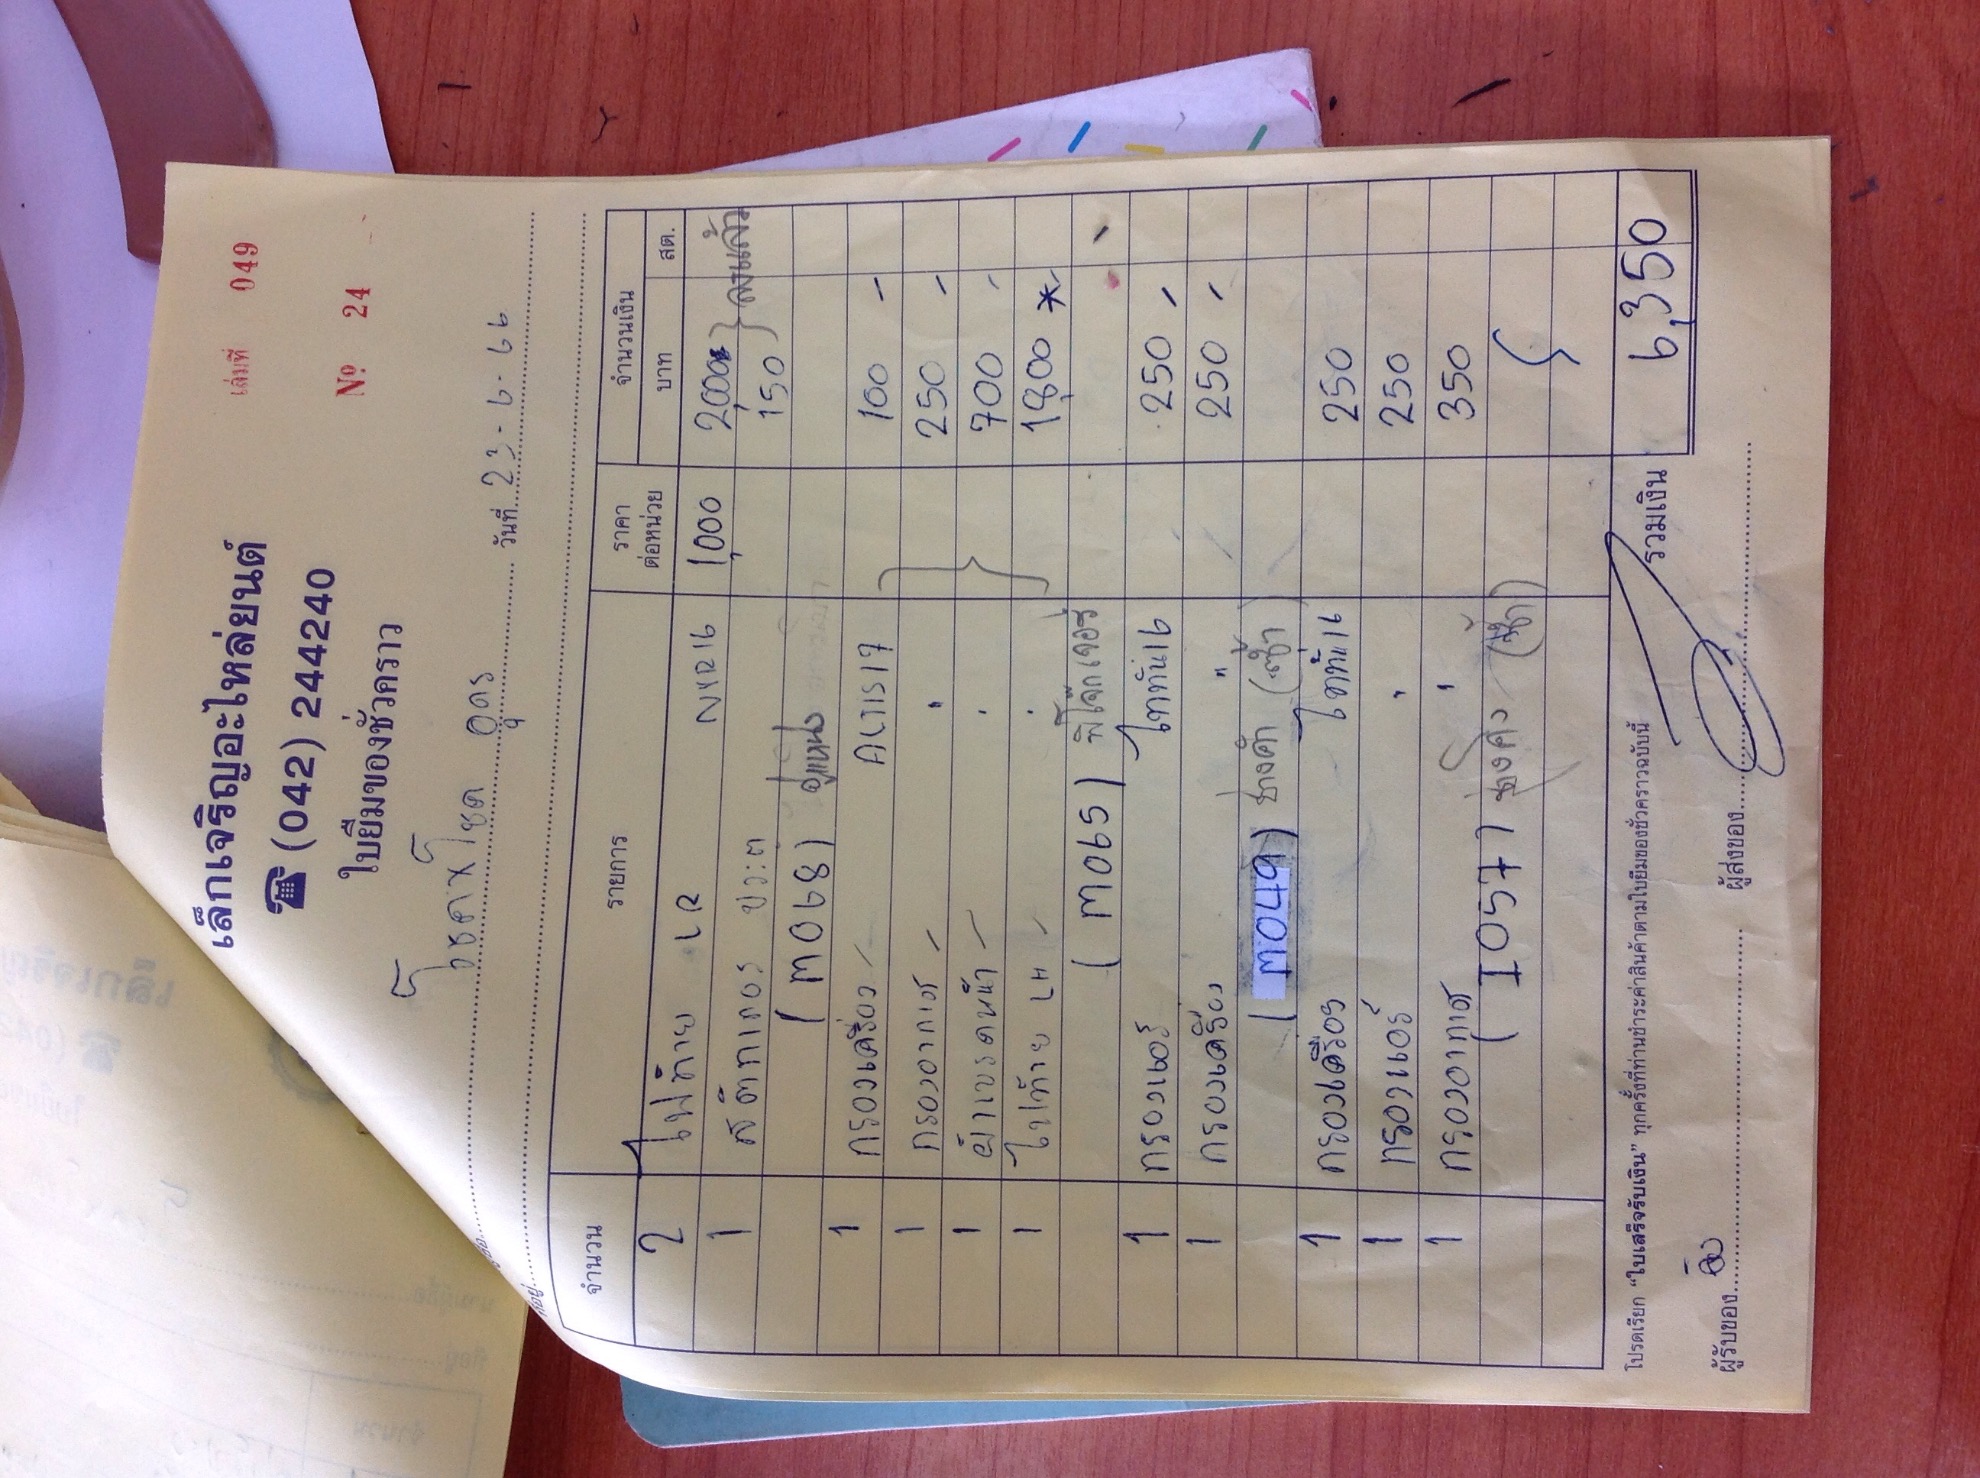 เล่มที่ 049
เล็กเจริญอะไหล่ยนต์
☎ (042) 244240
Nº 24
ใบยืมของชั่วคราว
อุดร วันที่ 23-6-66
จำนวน รายการ ราคาต่อหน่วย จำนวนเงิน
บาท สต.
2 ไฟท้าย LR NYR16 1,000 2,000 } ลงแล้ว
1 สติกเกอร์ 150
(M068) อู่แหน่ง
1 กรองเครื่อง ALTIS 17 100 -
1 กรองอากาศ " 250 -
1 ผ้าเบรคหน้า " 700 -
1 ไฟท้าย LH " 1,800 *
(M065)
1 กรองแอร์ ไททัน16 250 -
1 กรองเครื่อง " 250 -
(M049) ช่างคำ (เช้า)
1 กรองเครื่อง ไททัน16 250
1 กรองแอร์ " 250
1 กรองอากาศ " 350
(I057) (เช้า)
รวมเงิน 6,350
โปรดเรียก "ใบเสร็จรับเงิน" ทุกครั้งที่ท่านชำระค่าสินค้าตามใบยืมของชั่วคราวฉบับนี้
ผู้รับของ ผู้ส่งของ